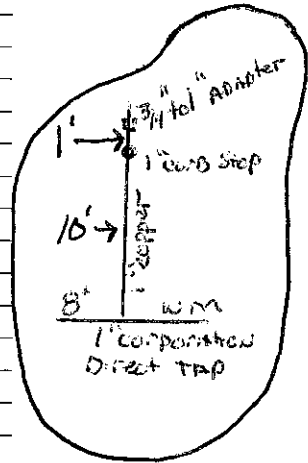 3/4" to 1" ADAPTER
1'
1" curb Stop
10'
1" copper
8" W m
1" corporation
Direct TAP